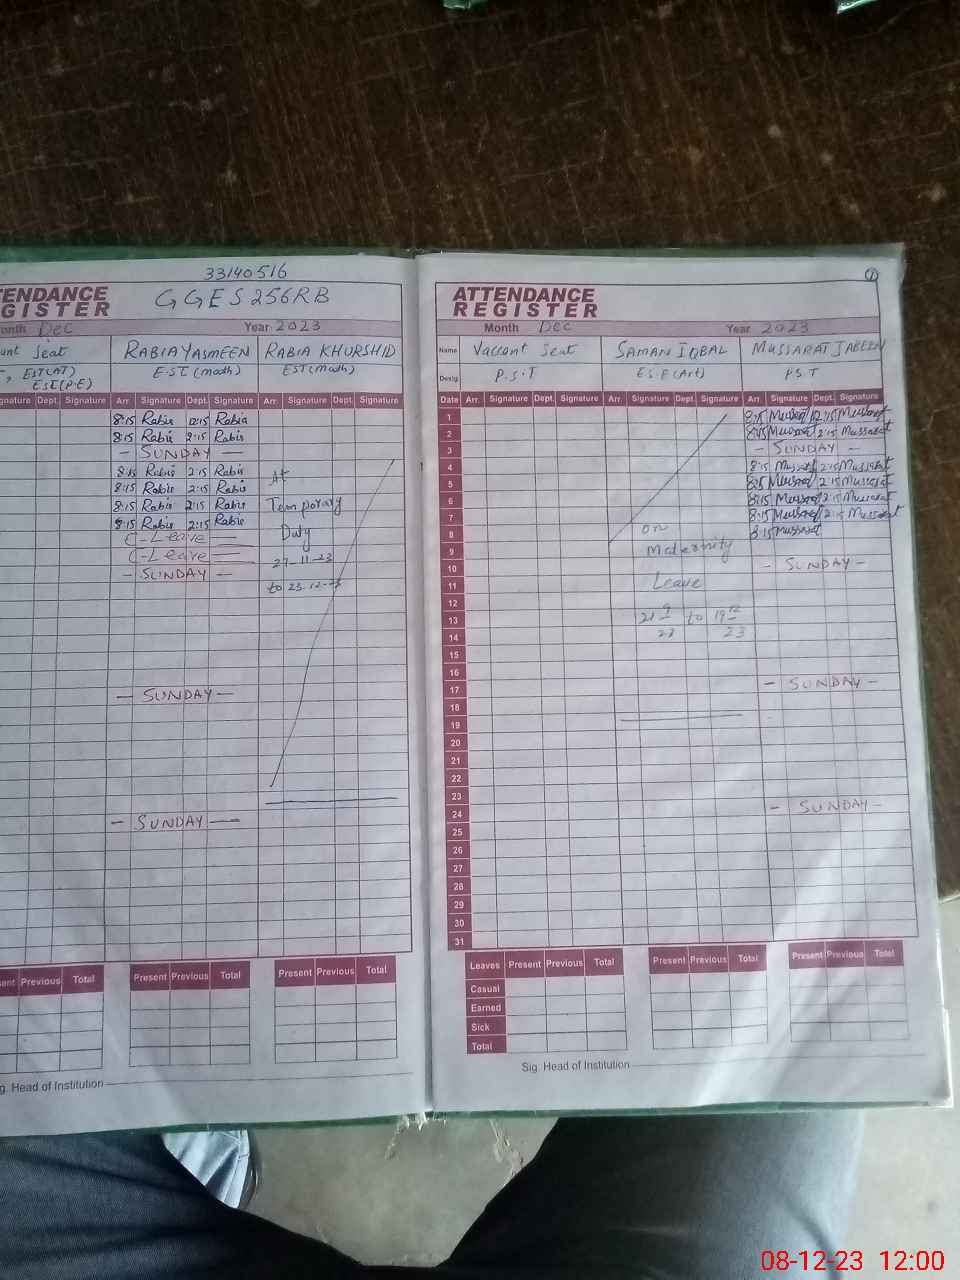 33140516
GGES 256RB
TENDANCE
GISTER
onth Dec Year 2023
unt Seat RABIA YASMEEN RABIA KHURSHID
EST(AT) E.S.T (math) EST(Math)
EST(P.E)
gnature Dept. Signature Arr. Signature Dept. Signature Arr. Signature Dept. Signature
8:15 Rabia 12:15 Rabia
8:15 Rabia 2:15 Rabia
- SUNDAY -
8:15 Rabia 2:15 Rabia
8:15 Rabia 2:15 Rabia
8:15 Rabia 2:15 Rabia
8:15 Rabia 2:15 Rabia
C-Leave
C-Leave
- SUNDAY -
- SUNDAY -
- SUNDAY -
At
Temporary
Duty
27-11-23
to 23-12-23
ent Previous Total Present Previous Total Present Previous Total
g. Head of Institution
1
ATTENDANCE
REGISTER
Month Dec Year 2023
Name Vaccant Seat SAMAN IQBAL MUSSARAT JABEEN
Desig P.S.T E.S.E(Art) P.S.T
Date Arr. Signature Dept. Signature Arr. Signature Dept. Signature Arr. Signature Dept. Signature
1 8:15 Mussarat 12:15 Mussarat
2 8:15 Mussarat 2:15 Mussarat
3 - SUNDAY -
4 8:15 Mussarat 2:15 Mussarat
5 8:15 Mussarat 2:15 Mussarat
6 8:15 Mussarat 2:15 Mussarat
7 8:15 Mussarat 2:15 Mussarat
8 on 8:15 Mussarat
9 Maternity
10 - SUNDAY -
11 Leave
12
13 to
14
15
16
17 - SUNDAY -
18
19
20
21
22
23
24 - SUNDAY -
25
26
27
28
29
30
31
Leaves Present Previous Total Present Previous Total Present Previous Total
Casual
Earned
Sick
Total
Sig. Head of Institution
08-12-23 12:00